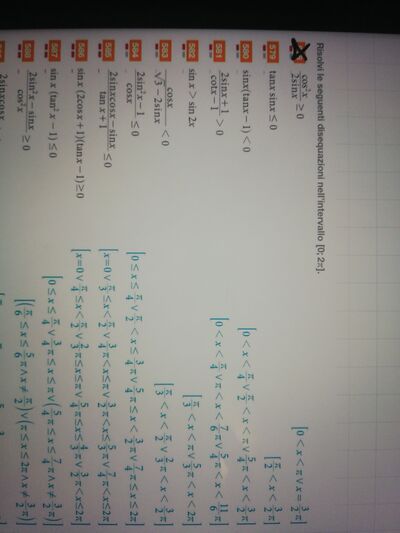 Risolvi le seguenti disequazioni nell'intervallo [0; 2π].
cos²x/2sinx ≥ 0 [0 < x < π ∨ x = 3/2 π]
579 tanx sinx ≤ 0 [π/2 < x < 3/2 π]
580 sinx(tanx − 1) < 0 [0 < x < π/4 ∨ π/2 < x < π ∨ 5/4 π < x < 3/2 π]
581 2sinx + 1/cotx − 1 > 0 [0 < x < π/4 ∨ π < x < 7/6 π ∨ 5/4 π < x < 11/6 π]
582 sin x > sin 2x [π/3 < x < π ∨ 5/3 π < x < 2π]
583 cosx/√3 − 2sinx < 0 [π/3 < x < π/2 ∨ 2/3 π < x < 3/2 π]
584 2sin²x − 1/cosx ≤ 0 [0 ≤ x ≤ π/4 ∨ π/2 < x ≤ 3/4 π ∨ 5/4 π ≤ x < 3/2 π ∨ 7/4 π ≤ x ≤ 2π]
585 2sinxcosx − sinx/tanx + 1 ≤ 0 [x = 0 ∨ π/3 ≤ x < π/2 ∨ 3/4 π < x ≤ π ∨ 3/2 π < x ≤ 5/3 π ∨ 7/4 π < x ≤ 2π]
586 sinx (2cosx + 1)(tanx − 1) ≥ 0 [x = 0 ∨ π/4 ≤ x < π/2 ∨ 2/3 π ≤ x ≤ π ∨ 5/4 π ≤ x ≤ 4/3 π ∨ 3/2 π < x ≤ 2π]
587 sinx (tan²x − 1) ≤ 0 [0 ≤ x ≤ π/4 ∨ 3/4 π ≤ x ≤ π ∨ (5/4 π ≤ x ≤ 7/4 π ∧ x ≠ 3/2 π)]
588 2sin²x − sinx/cos²x ≥ 0 [(π/6 ≤ x ≤ 5/6 π ∧ x ≠ π/2) ∨ (π ≤ x ≤ 2π ∧ x ≠ 3/2 π)]
2sinxcosx